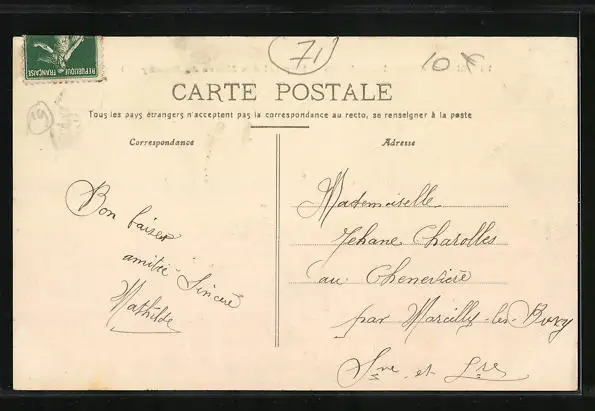 RÉPUBLIQUE FRANÇAISE
71
10 F
19
CARTE POSTALE
Tous les pays étrangers n'acceptent pas la correspondance au recto, se renseigner à la poste
Correspondance
Adresse
Bon baiser
amitié Sincère
Mathilde
Mademoiselle
Jehane Charolles
au Chenevière
par Marcilly-les-Buxy
Sne et Lre